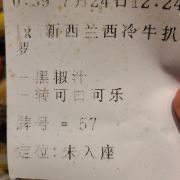 0:39 7月24日12:24
1x 新西兰西冷牛扒
罗
—黑椒汁
—转可口可乐
牌号 = 57
定位: 未入座